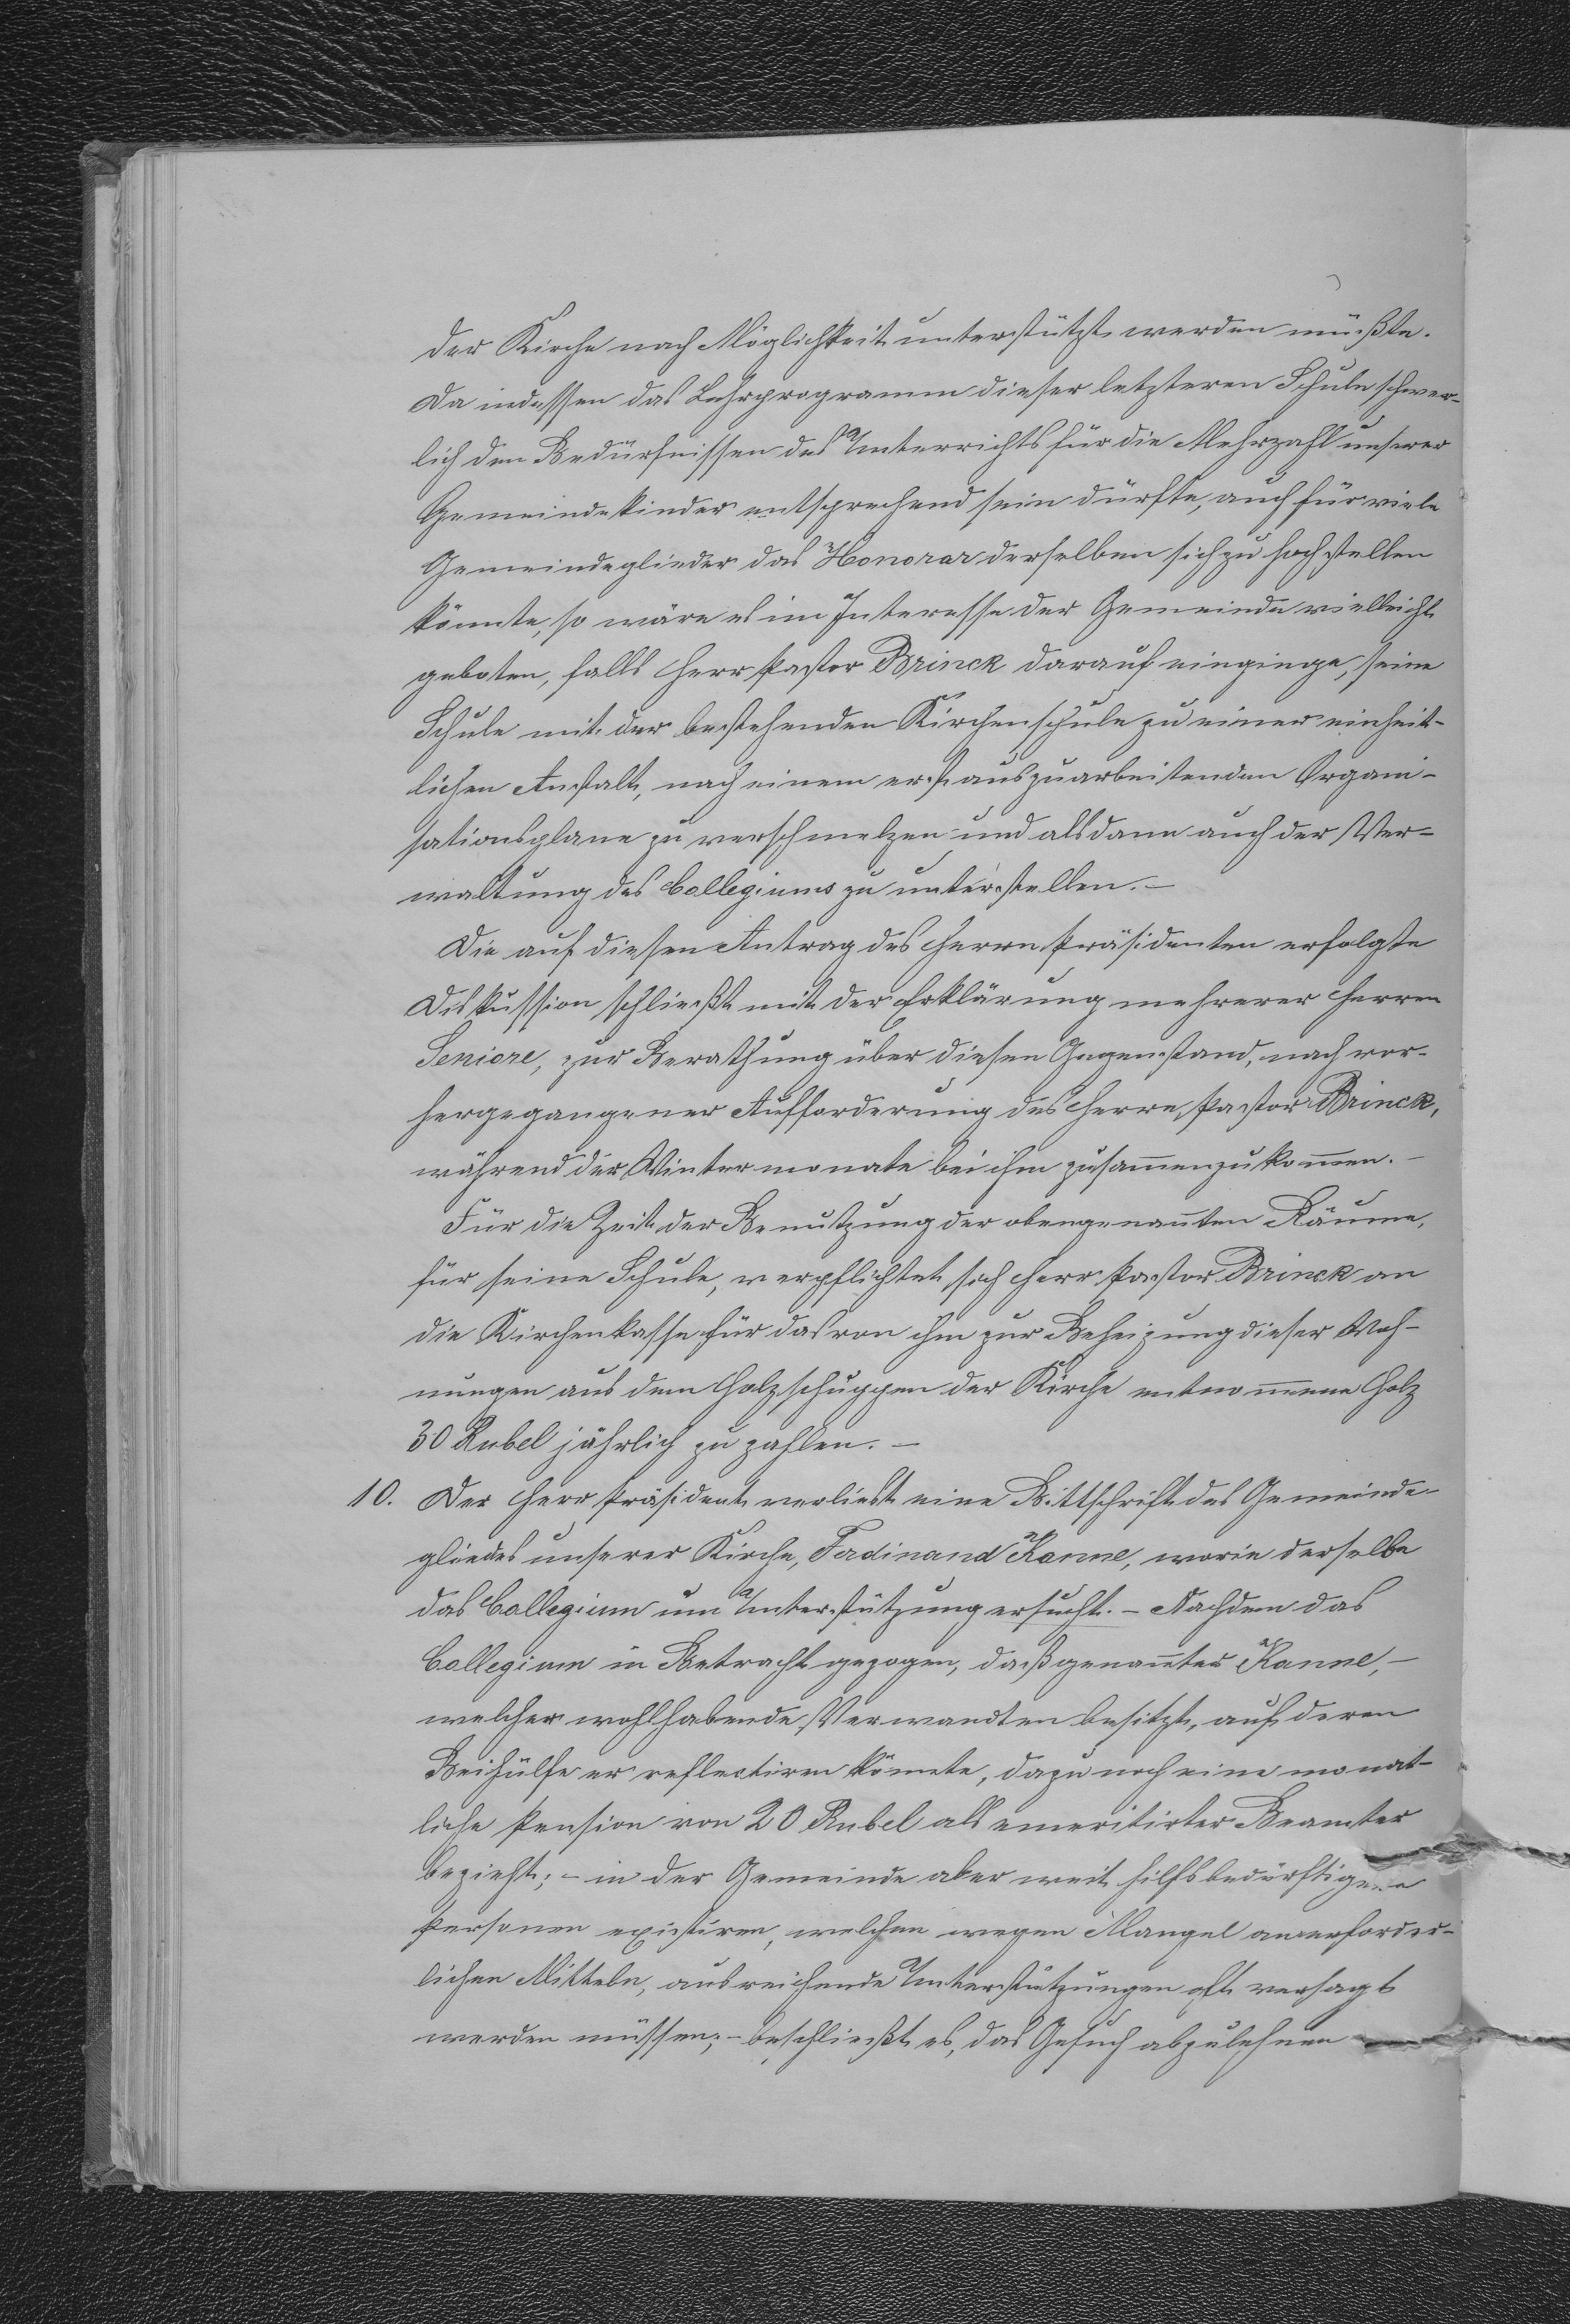 der Kirche nach Möglichkeit unterstützt werden müßte.
Da indessen das Lehrprogramm dieser letzteren Schule schwer-
lich den Bedürfnissen des Unterrichts für die Mehrzahl unserer
Gemeindekinder entsprechend sein dürfte, auch für viele
Gemeindeglieder das Honorar derselben sich zu hoch stellen
könnte, so wäre es im Interesse der Gemeinde vielleicht
geboten, falls Herr Pastor Brinck darauf einginge, seine
Schule mit der bestehenden Kirchenschule zu einer einheit-
lichen Anstalt, nach einem erst auszuarbeitenden Organi-
sationsplane zu verschmelzen und alsdann auch der Ver-
waltung des Collegiums zu unterstellen. –
Die auf diesen Antrag des Herrn Präsidenten erfolgte
Diskussion schließt mit der Erklärung mehrerer Herren
Seniore, zur Berathung über diesen Gegenstand, nach vor-
hergegangener Aufforderung des Herrn Pastor Brinck,
während der Wintermonate bei ihm zusam̅enzukom̅en. –
Für die Zeit der Benutzung der obengenan̅ten Räume,
für seine Schule, verpflichtet sich Herr Pastor Brinck an
die Kirchenkasse für das von ihm zur Beheizung dieser Woh-
nungen aus dem Holzschuppen der Kirche entnommene Holz
30 Rubel jährlich zu zahlen. –
10. Der Herr Präsident verliest eine Bittschrift des Gemeinde-
gliedes unserer Kirche, Ferdinand Kanne, worin derselbe
das Collegium um Unterstützung ersucht. – Nachdem das
Collegium in Betracht gezogen, daß genan̅ter Kanne, –
welcher wohlhabende Verwandten besitzt, auf deren
Beihülfe er reflectiren könnte, dazu noch eine monat-
liche Pension von 20 Rubel als emeritirter Beamter
bezieht; – in der Gemeinde aber weit hilfsbedürftigere
Personen existiren, welchen wegen Mangel an erforder-
lichen Mitteln, ausreichende Unterstützungen oft versagt
werden müssen; – beschließt es, das Gesuch abzulehnen